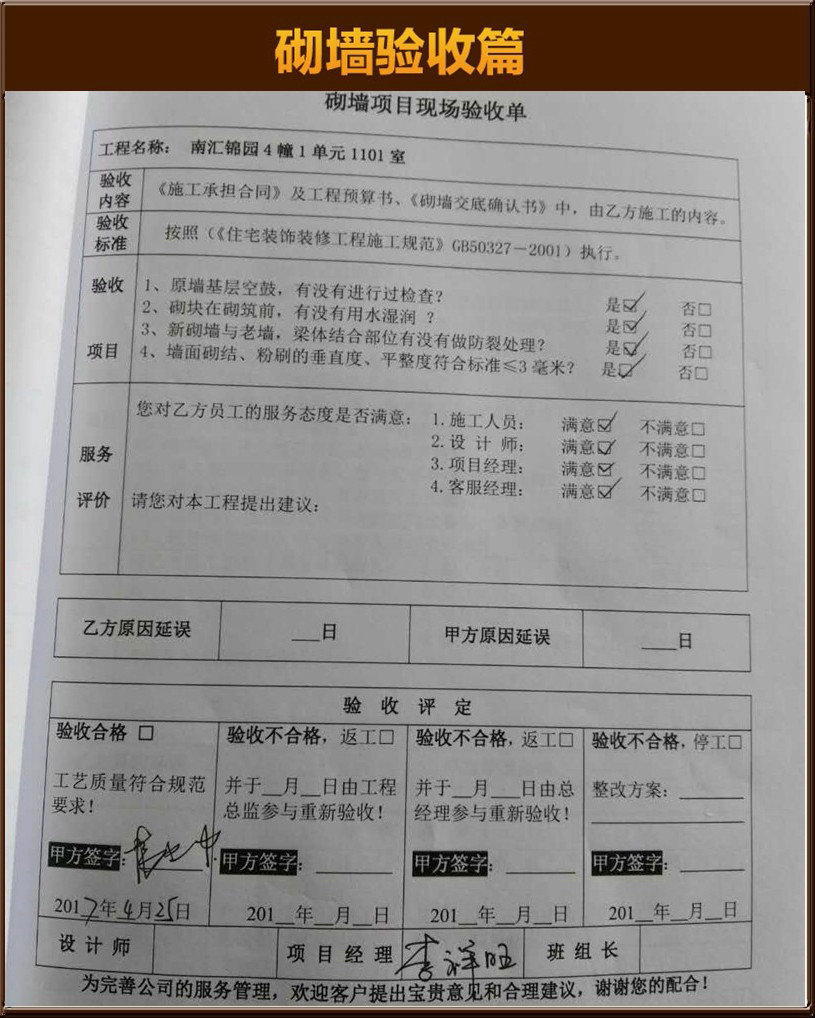 砌墙验收篇
砌墙项目现场验收单
工程名称： 南汇锦园4幢1单元1101室
验收内容 《施工承担合同》及工程预算书、《砌墙交底确认书》中，由乙方施工的内容。
验收标准 按照（《住宅装饰装修工程施工规范》GB50327－2001）执行。
验收项目
1、原墙基层空鼓，有没有进行过检查？ 是☑ 否□
2、砌块在砌筑前，有没有用水湿润 ？ 是☑ 否□
3、新砌墙与老墙，梁体结合部位有没有做防裂处理？ 是☑ 否□
4、墙面砌结、粉刷的垂直度、平整度符合标准≤3毫米？ 是☑ 否□
服务评价
您对乙方员工的服务态度是否满意： 1.施工人员： 满意☑ 不满意□
2.设 计 师： 满意☑ 不满意□
3.项目经理： 满意☑ 不满意□
4.客服经理： 满意☑ 不满意□
请您对本工程提出建议：
乙方原因延误 ___日 甲方原因延误 ___日
验 收 评 定
验收合格 □ 验收不合格，返工□ 验收不合格，返工□ 验收不合格，停工□
工艺质量符合规范 并于__月__日由工程 并于__月__日由总 整改方案：______
要求！ 总监参与重新验收！ 经理参与重新验收！
甲方签字： 甲方签字：______ 甲方签字：______ 甲方签字：______
2017年4月25日 201__年__月__日 201__年__月__日 201__年__月__日
设 计 师 项 目 经 理 李祥旺 班 组 长
为完善公司的服务管理，欢迎客户提出宝贵意见和合理建议，谢谢您的配合！